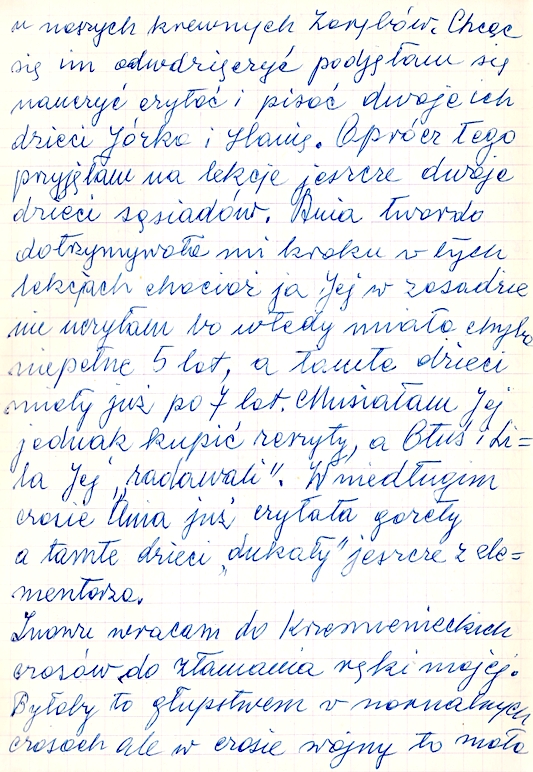 u naszych krewnych Zarębów. Chcąc
się im odwdzięczyć podjęłam się
nauczyć czytać i pisać dwoje ich
dzieci Jórka i Hanię. Oprócz tego
przyjęłam na lekcje jeszcze dwoje
dzieci sąsiadów. Ania twardo
dotrzymywała mi kroku w tych
lekcjach chociaż ja Jej w zasadzie
nie uczyłam bo wtedy miała chyba
niepełne 5 lat, a tamte dzieci
miały już po 7 lat. Musiałam Jej
jednak kupić zeszyty, a Otuś i Li=
la Jej "zadawali". W niedługim
czasie Ania już czytała gazety
a tamte dzieci "dukały" jeszcze z ele=
mentarza.
Znowu wracam do Krzemienieckich
czasów do złamania ręki mojej.
Byłoby to głupstwem w normalnych
czasach ale w czasie wojny to miało